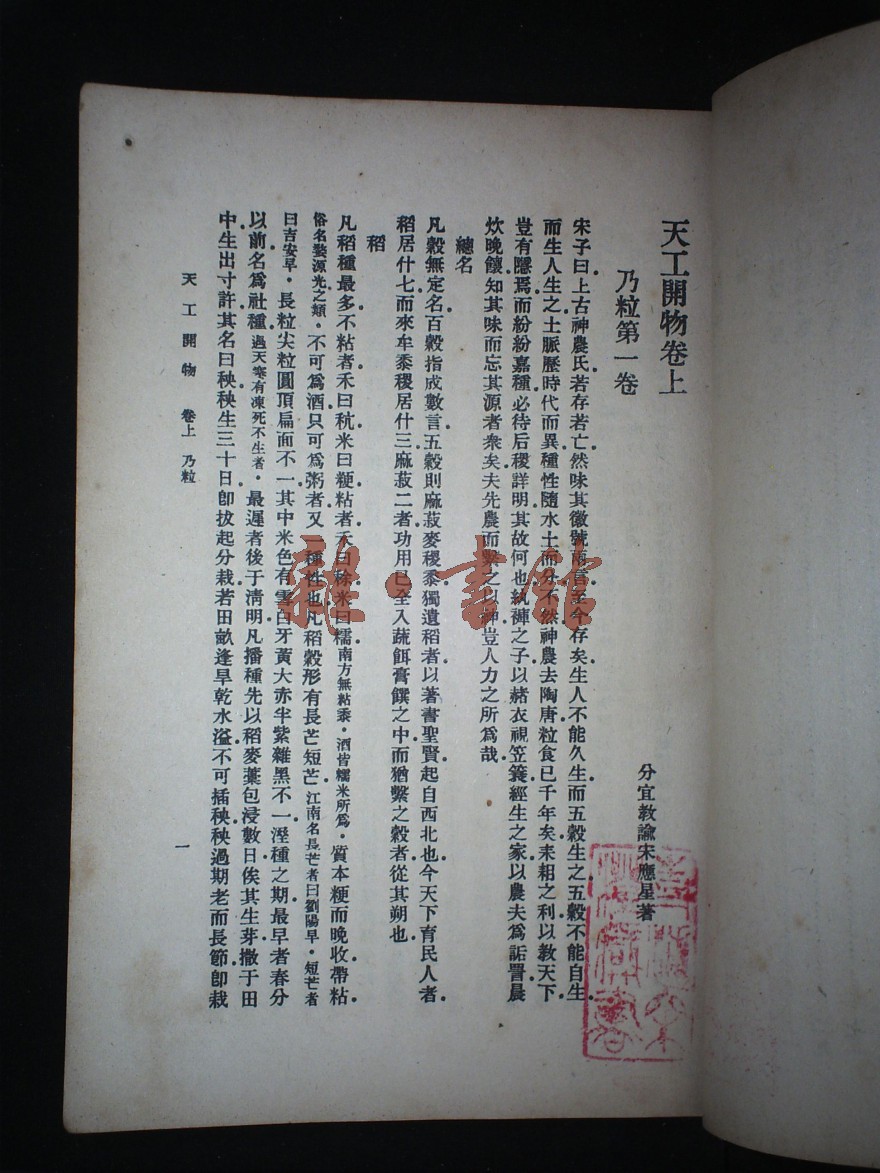 天工開物卷上
分宜教諭宋應星著
乃粒第一卷
宋子曰上古神農氏若存若亡然味其徽號兩言至今存矣生人不能久生而五穀生之五穀不能自生
而生人生之土脈歷時代而異種性隨水土而分不然神農去陶唐粒食已千年矣耒耜之利以教天下
豈有隱焉而紛紛嘉種必待后稷詳明其故何也紈褲之子以赭衣視笠簑經生之家以農夫為詬詈晨
炊晚饟知其味而忘其源者衆矣夫先農而繫之以神豈人力之所為哉
總名
凡穀無定名百穀指成數言五穀則麻菽麥稷黍獨遺稻者以著書聖賢起自西北也今天下育民人者
稻居什七而來牟黍稷居什三麻菽二者功用已全入蔬餌膏饌之中而猶繫之穀者從其朔也
稻
凡稻種最多不粘者禾曰秔米曰粳粘者禾曰稌米曰糯南方無粘黍酒皆糯米所為質本粳而晚收帶粘
俗名婺源光之類不可為酒只可為粥者又一種性也凡稻穀形有長芒短芒江南名長芒者曰劉陽早短芒者
曰吉安早長粒尖粒圓頂扁面不一其中米色有雪白牙黃大赤半紫雜黑不一溼種之期最早者春分
以前名為社種遇天寒有凍死不生者最遲者後于清明凡播種先以稻麥藁包浸數日俟其生芽撒于田
中生出寸許其名曰秧秧生三十日卽拔起分栽若田畝逢旱乾水溢不可插秧秧過期老而長節卽栽
天工開物 卷上 乃粒
一
雜·書館